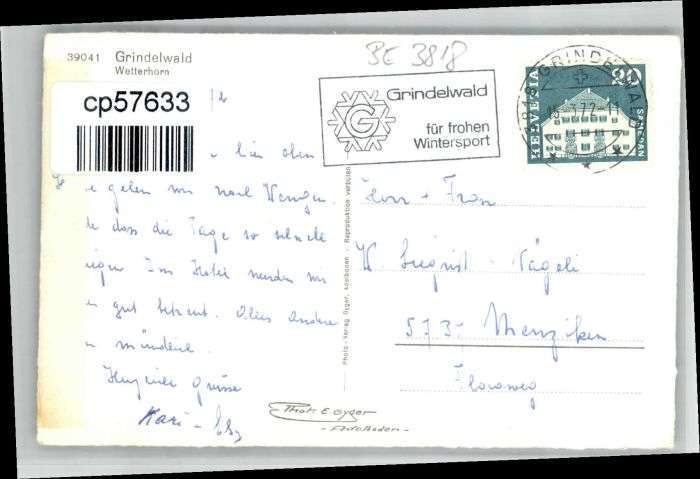 39041 Grindelwald
Wetterhorn
BE 3818
cp57633
hier oben
gehen wir nach Wengen.
dass die Tage so schnell
Im Hotel werden wir
gut betreut. Alles andere
mündlich.
Herzliche Grüsse
Kari - Elsy
Grindelwald
für frohen
Wintersport
3818 GRINDELWALD
HELVETIA
20
Herr + Frau
W. Siegrist - Nägeli
5737 Menziken
Floraweg
Photo-Verlag Gyger, Adelboden - Reproduktion verboten
Phot. E. Gyger
- Adelboden -